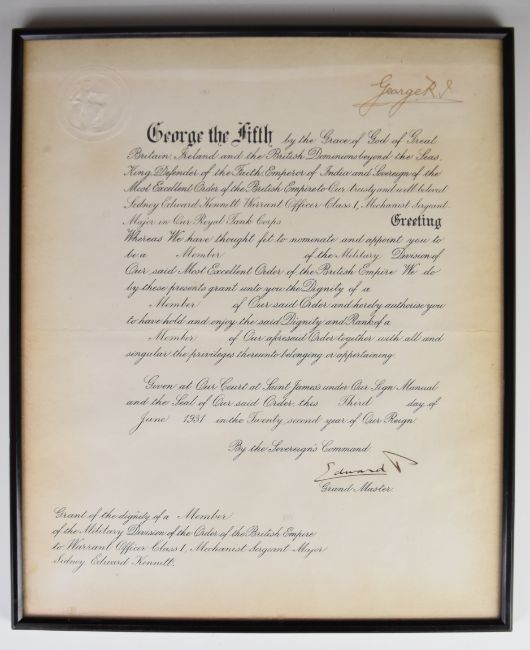 George R.I.
George the Fifth by the Grace of God of Great
Britain, Ireland and the British Dominions beyond the Seas,
King, Defender of the Faith, Emperor of India and Sovereign of the
Most Excellent Order of the British Empire to Our trusty and well beloved
Sidney Edward Kennett Warrant Officer Class 1, Mechanist Sergeant
Major in Our Royal Tank Corps Greeting
Whereas We have thought fit to nominate and appoint you to
be a Member of the Military Division of
Our said Most Excellent Order of the British Empire We do
by these presents grant unto you the Dignity of a
Member of Our said Order and hereby authorise you
to have hold and enjoy the said Dignity and Rank of a
Member of Our aforesaid Order together with all and
singular the privileges thereunto belonging or appertaining.
Given at Our Court at Saint James's under Our Sign Manual
and the Seal of Our said Order, this Third day of
June 1931 in the Twenty second year of Our Reign.
By the Sovereign's Command.
Edward P
Grand Master.
Grant of the dignity of a Member
of the Military Division of the Order of the British Empire
to Warrant Officer Class 1, Mechanist Sergeant Major
Sidney Edward Kennett.